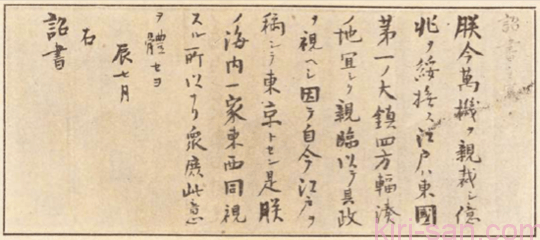 朕今萬機ヲ親裁シ億
兆ヲ綏撫ス江戸ハ東國
第一ノ大鎮四方輻湊
ノ地宜シク親臨以テ其政
ヲ視ヘシ因テ自今江戸ヲ
稱シテ東京トセン是朕
ノ海内一家東西同視
スル所以ナリ衆庶此意
ヲ體セヨ
辰七月
右
詔書
kiri-san.com